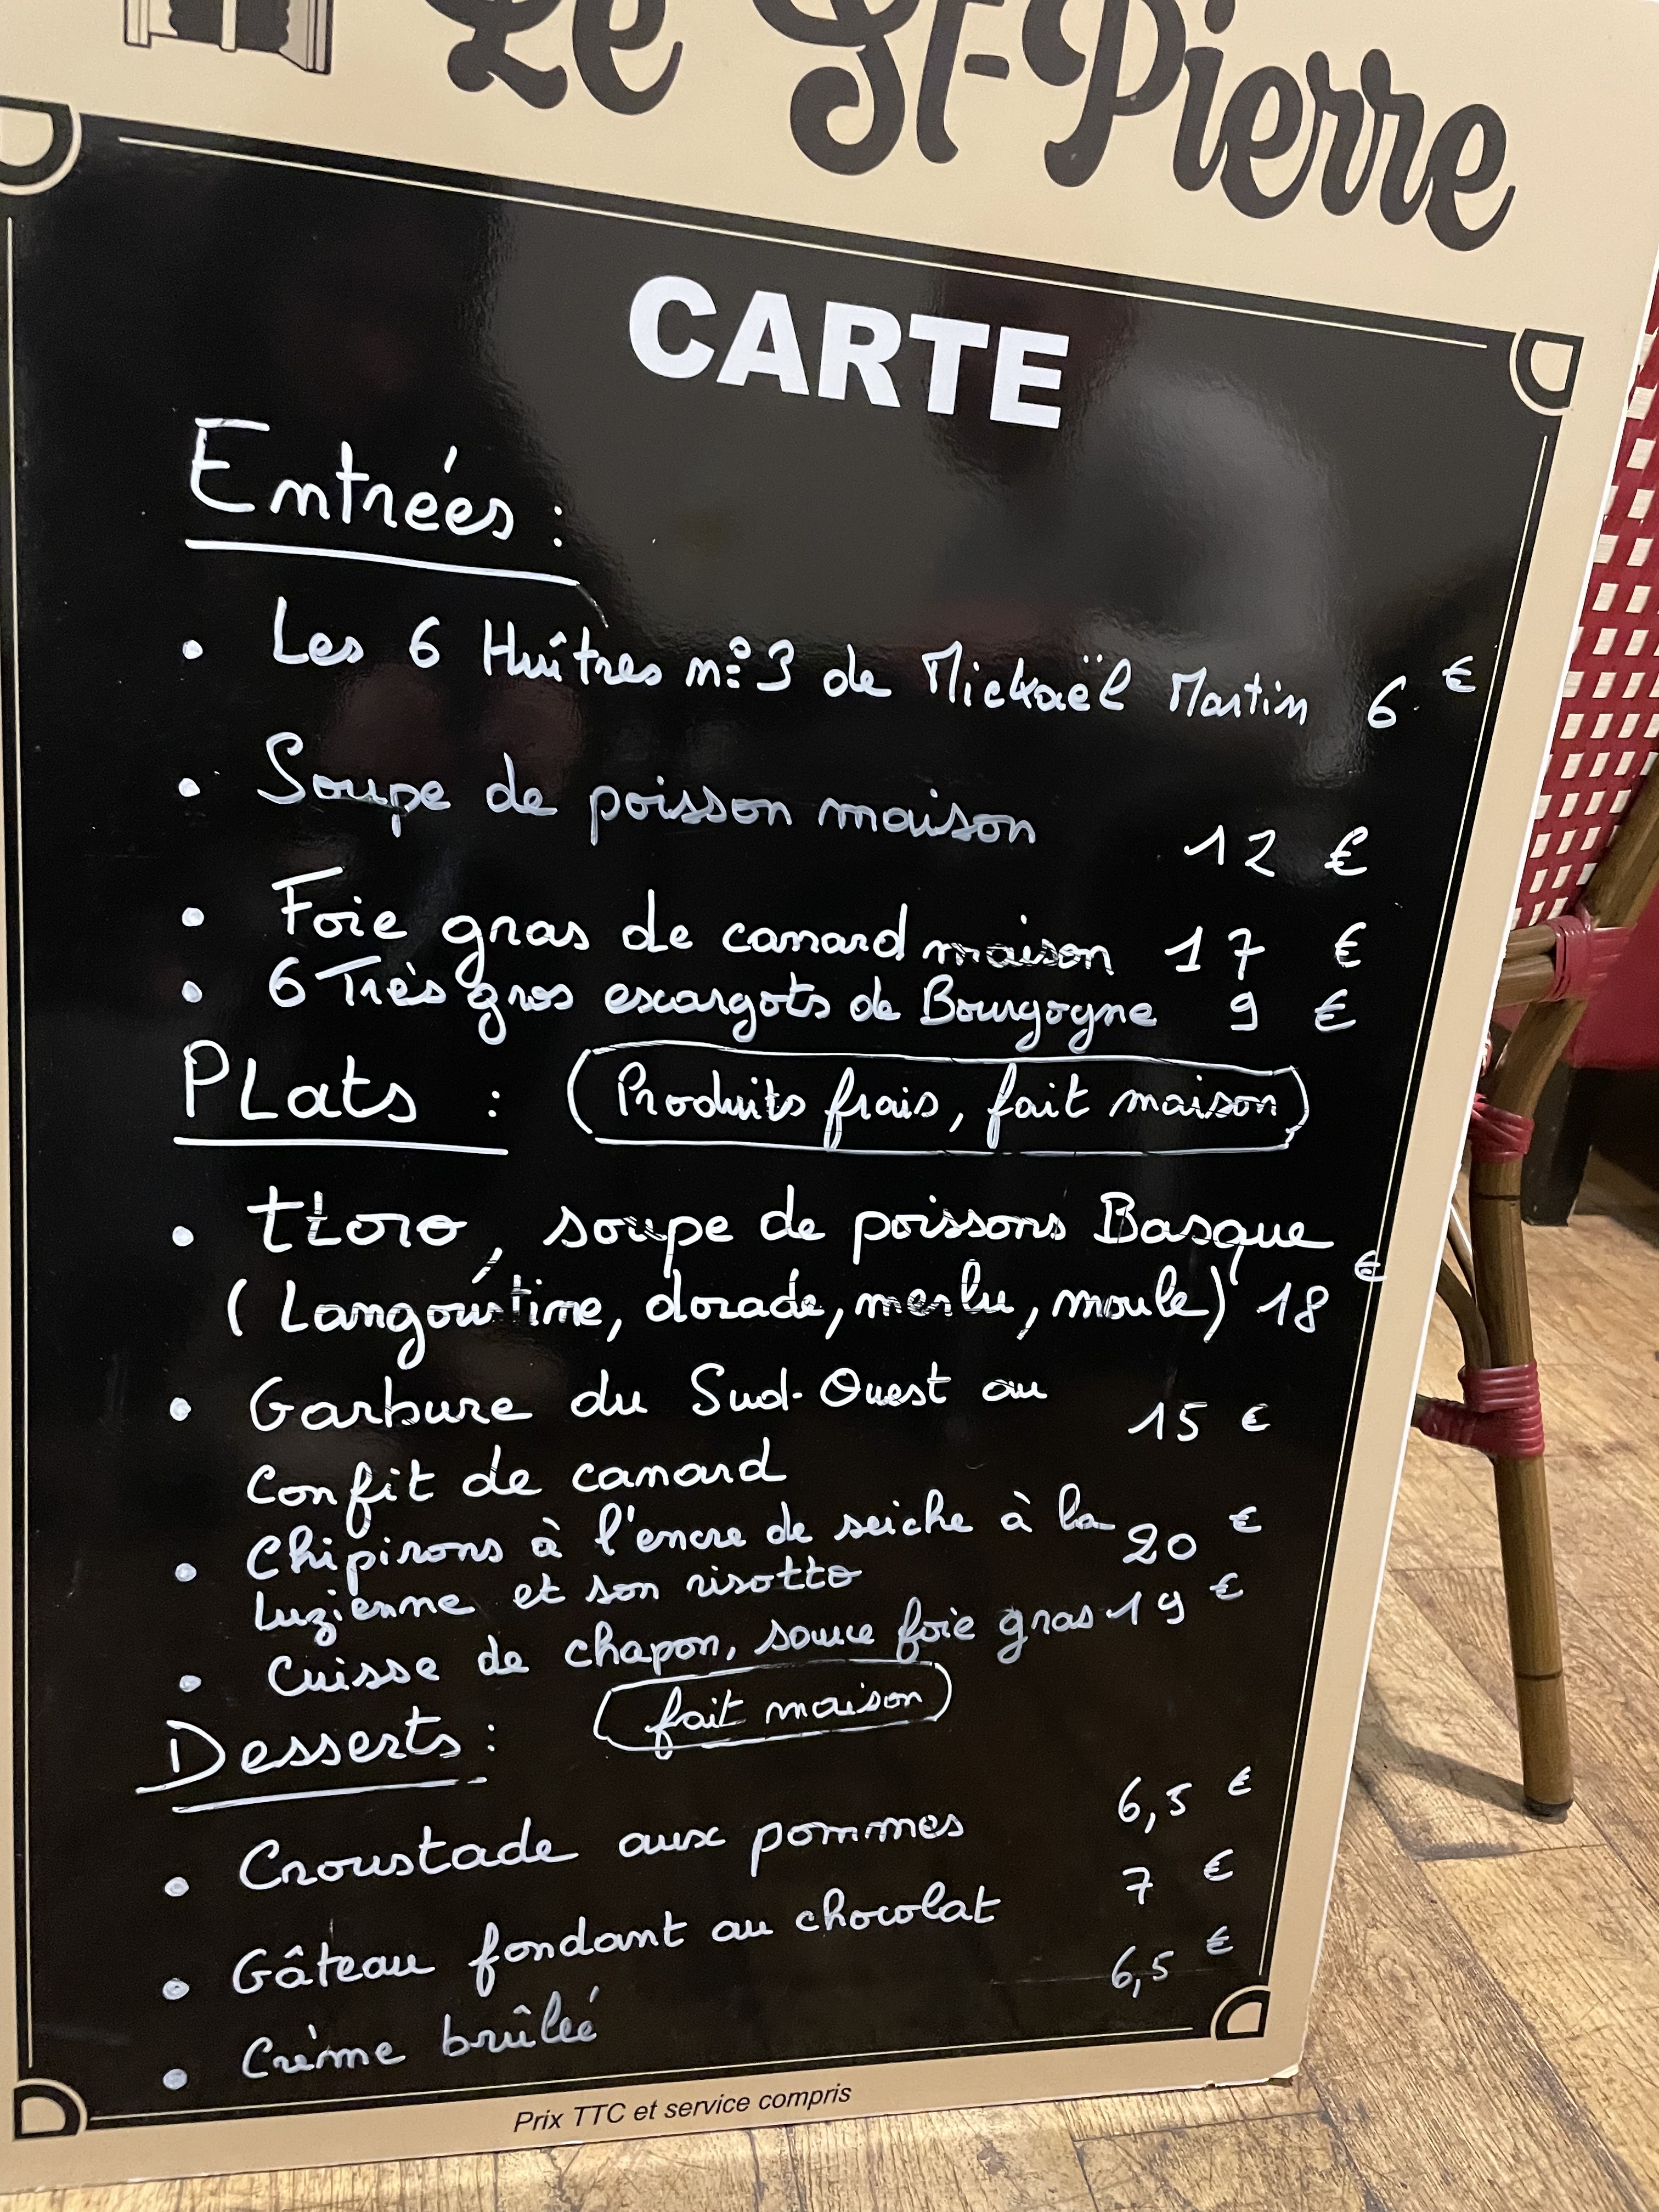 Le St-Pierre
CARTE
Entrées :
• Les 6 Huîtres n°3 de Mickaël Martin 6 €
• Soupe de poisson maison 12 €
• Foie gras de canard maison 17 €
• 6 Très gros escargots de Bourgogne 9 €
PLats : (Produits frais, fait maison)
• ttoro, soupe de poissons Basque
(Langoustine, dorade, merlu, moule) 18 €
• Garbure du Sud-Ouest au 15 €
Confit de canard
• Chipirons à l'encre de seiche à la 20 €
Luzienne et son risotto
• Cuisse de chapon, sauce foie gras 19 €
Desserts : (fait maison)
• Croustade aux pommes 6,5 €
• Gâteau fondant au chocolat 7 €
• Crème brûlée 6,5 €
Prix TTC et service compris